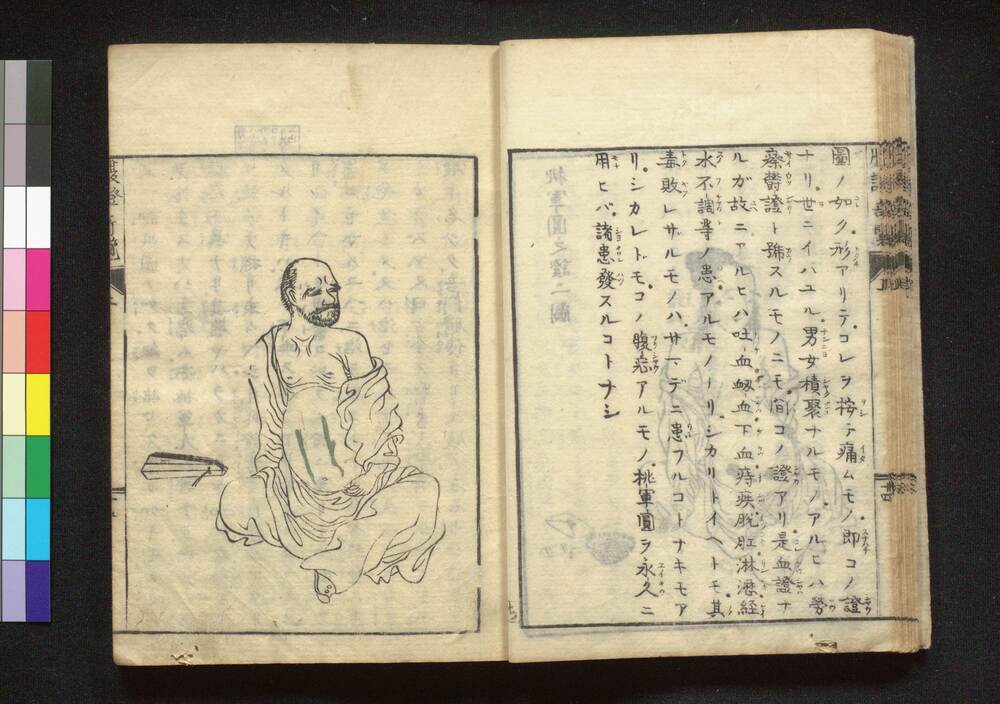 圖ノ如ク形アリテコレヲ按テ痛ムモノ即コノ證
ナリ世ニイハユル男女積聚ナルモノアルヒハ勞
瘵鬱證ト號スルモノニモ間コノ證アリ是血證ナ
ルガ故ニアルヒハ吐血衂血下血痔疾脱肛淋瀝経
水不調等ノ患アルモノーリシカリトイヘトモ其
毒敗レザルモノハサマデニ患フルコトナキモア
リシカレトモコノ腹惡アルモノ桃軍圓ヲ永久ニ
用ヒバ諸患發スルコトナシ